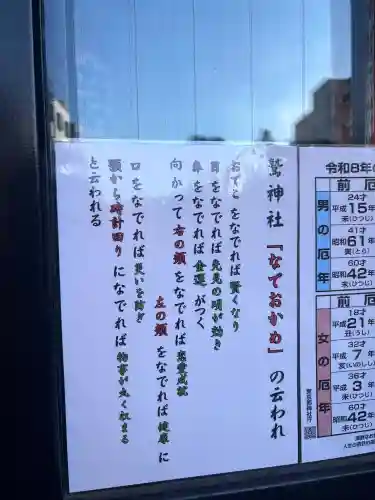 鷲神社「なでおかめ」の云われ
おでこをなでれば賢くなり
目をなでれば先見の明が効き
鼻をなでれば金運がつく
向かって右の頬をなでれば恋愛成就
左の頬をなでれば健康に
口をなでれば災いを防ぎ
顎から時計回りになでれば物事が丸く収まる
と云われる
令和8年
前厄
男の厄年
24才
平成15年
未(ひつじ)
41才
昭和61年
寅(とら)
60才
昭和42年
未(ひつじ)
前厄
女の厄年
18才
平成21年
丑(うし)
32才
平成7年
亥(いのしし)
36才
平成3年
未(ひつじ)
60才
昭和42年
未(ひつじ)